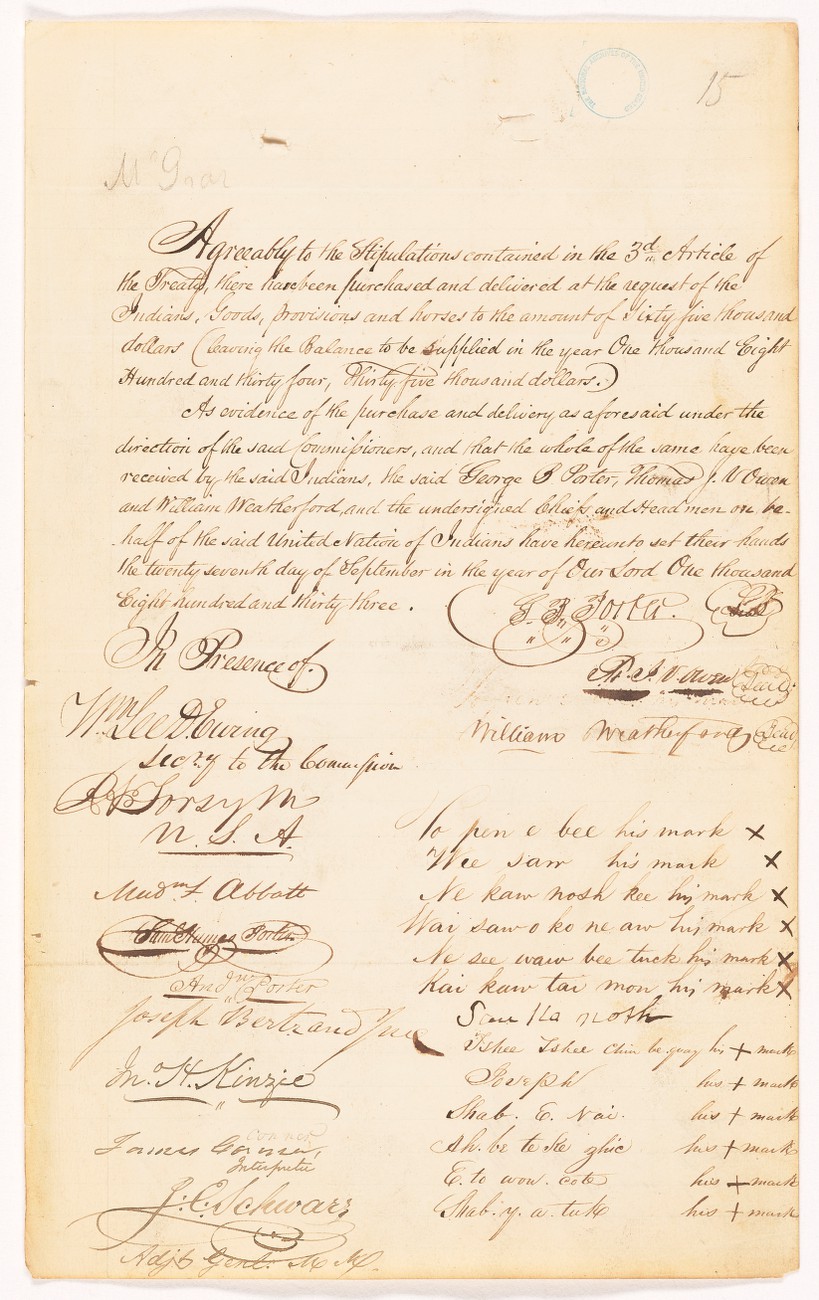 15
Agreeably to the Stipulations contained in the 3d Article of
the Treaty, there have been purchased and delivered at the request of the
Indians, Goods, provisions and horses to the amount of Sixty five thousand
dollars (leaving the Balance to be supplied in the year One thousand Eight
Hundred and thirty four, Thirty five thousand dollars.)
As evidence of the purchase and delivery as aforesaid under the
direction of the said Commissioners, and that the whole of the same have been
received by the said Indians, the said George B Porter, Thomas J. V Owen
and William Weatherford, and the undersigned Chiefs and Head men on be-
-half of the said United Nation of Indians have hereunto set their hands
the twenty seventh day of September in the year of Our Lord One thousand
Eight hundred and thirty three.
G. B. Porter. L.S
Th. J. V. Owen Seal
William Weatherford Seal
In Presence of.
Wm Lee D. Ewing
Secy to the Commission
R A Forsyth
U. S. A.
Madn F. Abbott
Saml Humes Porter
Andw Porter
Joseph Bertrand Jun
Jn. H. Kinzie
James Conner
Interpreter
J. C. Schwarz
Adjt Genl. M M.
To pen e bee his mark X
Wee saw his mark X
Ne kaw nosh kee his mark X
Wai saw o ko ne aw his mark X
Ne see waw bee tuck his mark X
Kai kaw tai mon his mark X
Sau ka nosh
Tshee Tshee Chin be quay his + mark
Joseph his + mark
Shab. E. Nai. his + mark
Ah. be te ke zhic his + mark
E. to wow. cote his + mark
Shab. y. a. tuk his + mark